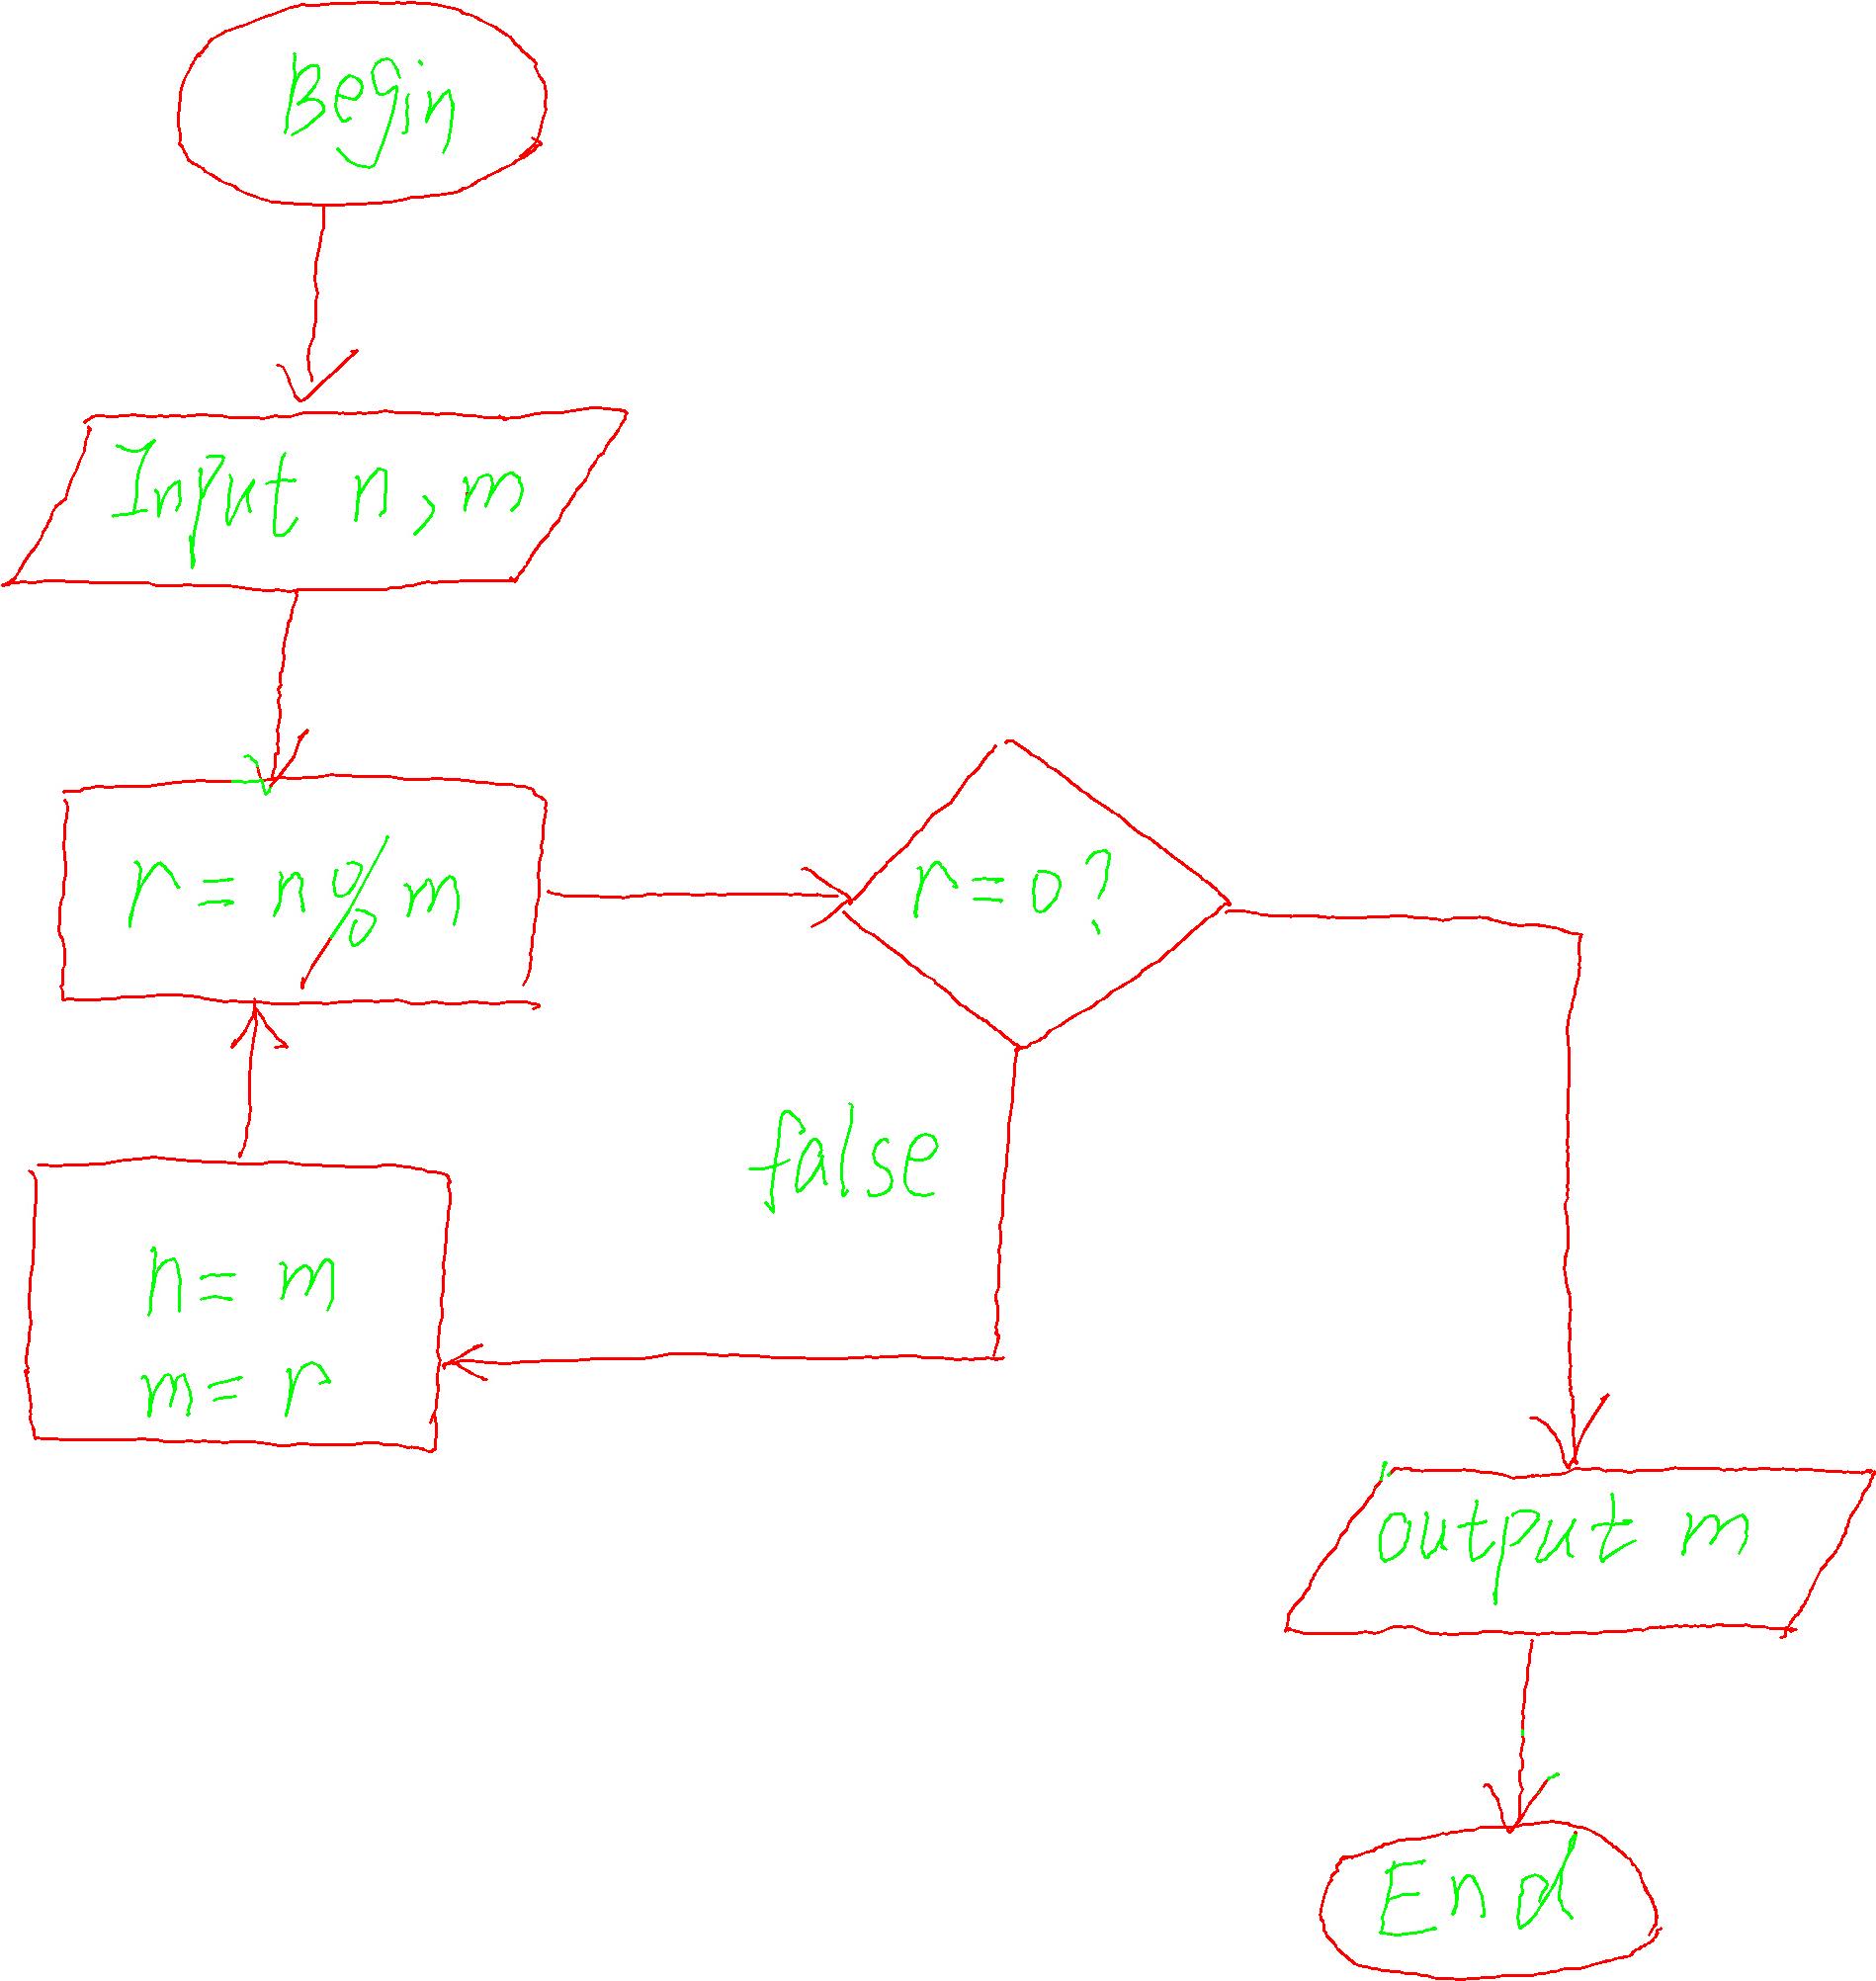 Begin
Input n, m
r = n % m
r = 0?
false
n = m
m = r
output m
End